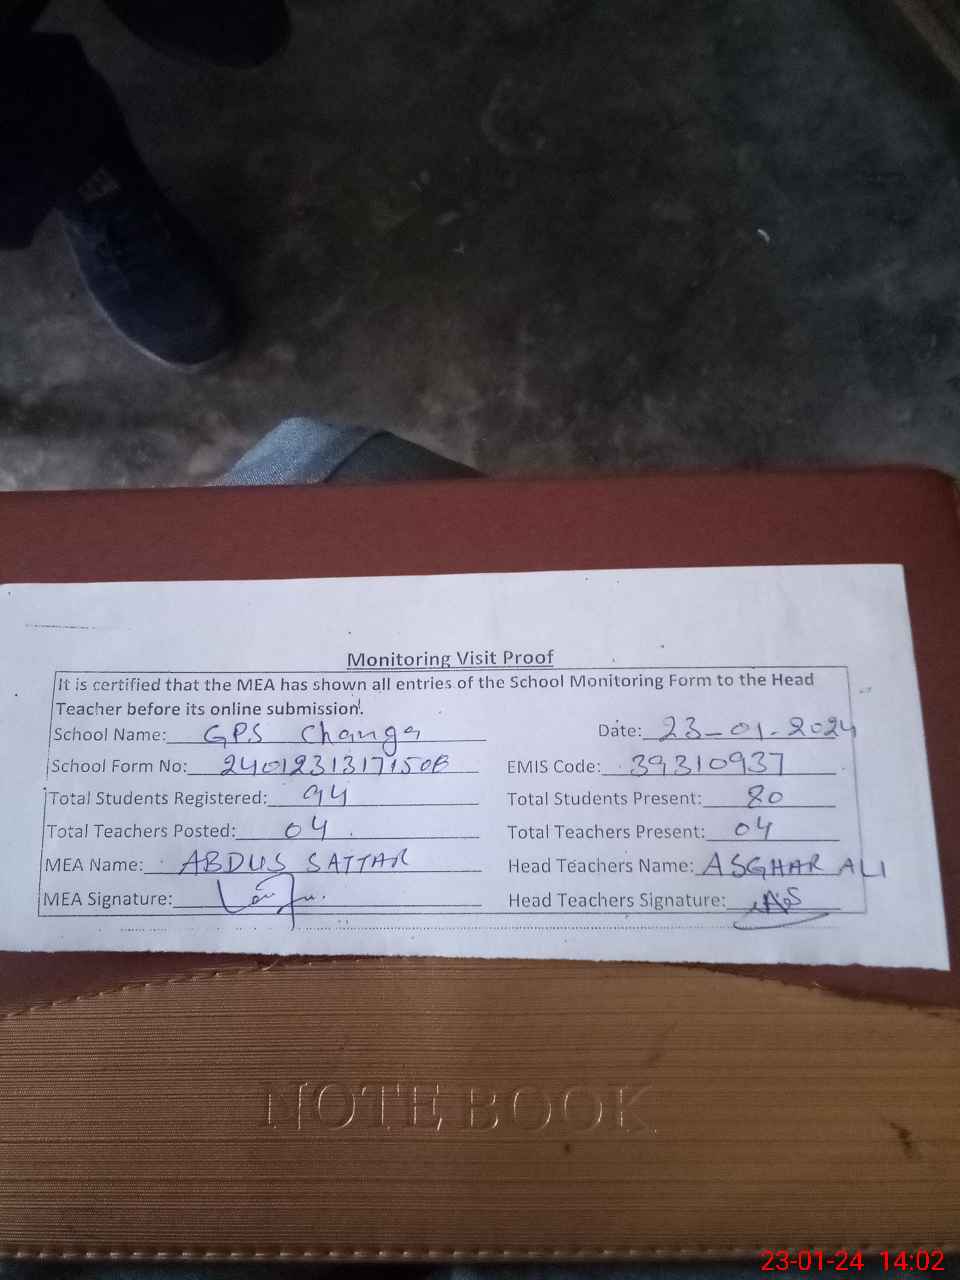 Monitoring Visit Proof
It is certified that the MEA has shown all entries of the School Monitoring Form to the Head
Teacher before its online submission.
School Name: GPS Changa Date: 23-01-2024
School Form No: 2401231317150B EMIS Code: 39310937
Total Students Registered: 94 Total Students Present: 80
Total Teachers Posted: 04 Total Teachers Present: 04
MEA Name: ABDUS SATTAR Head Teachers Name: ASGHAR ALI
MEA Signature: Head Teachers Signature:
NOTEBOOK
23-01-24 14:02